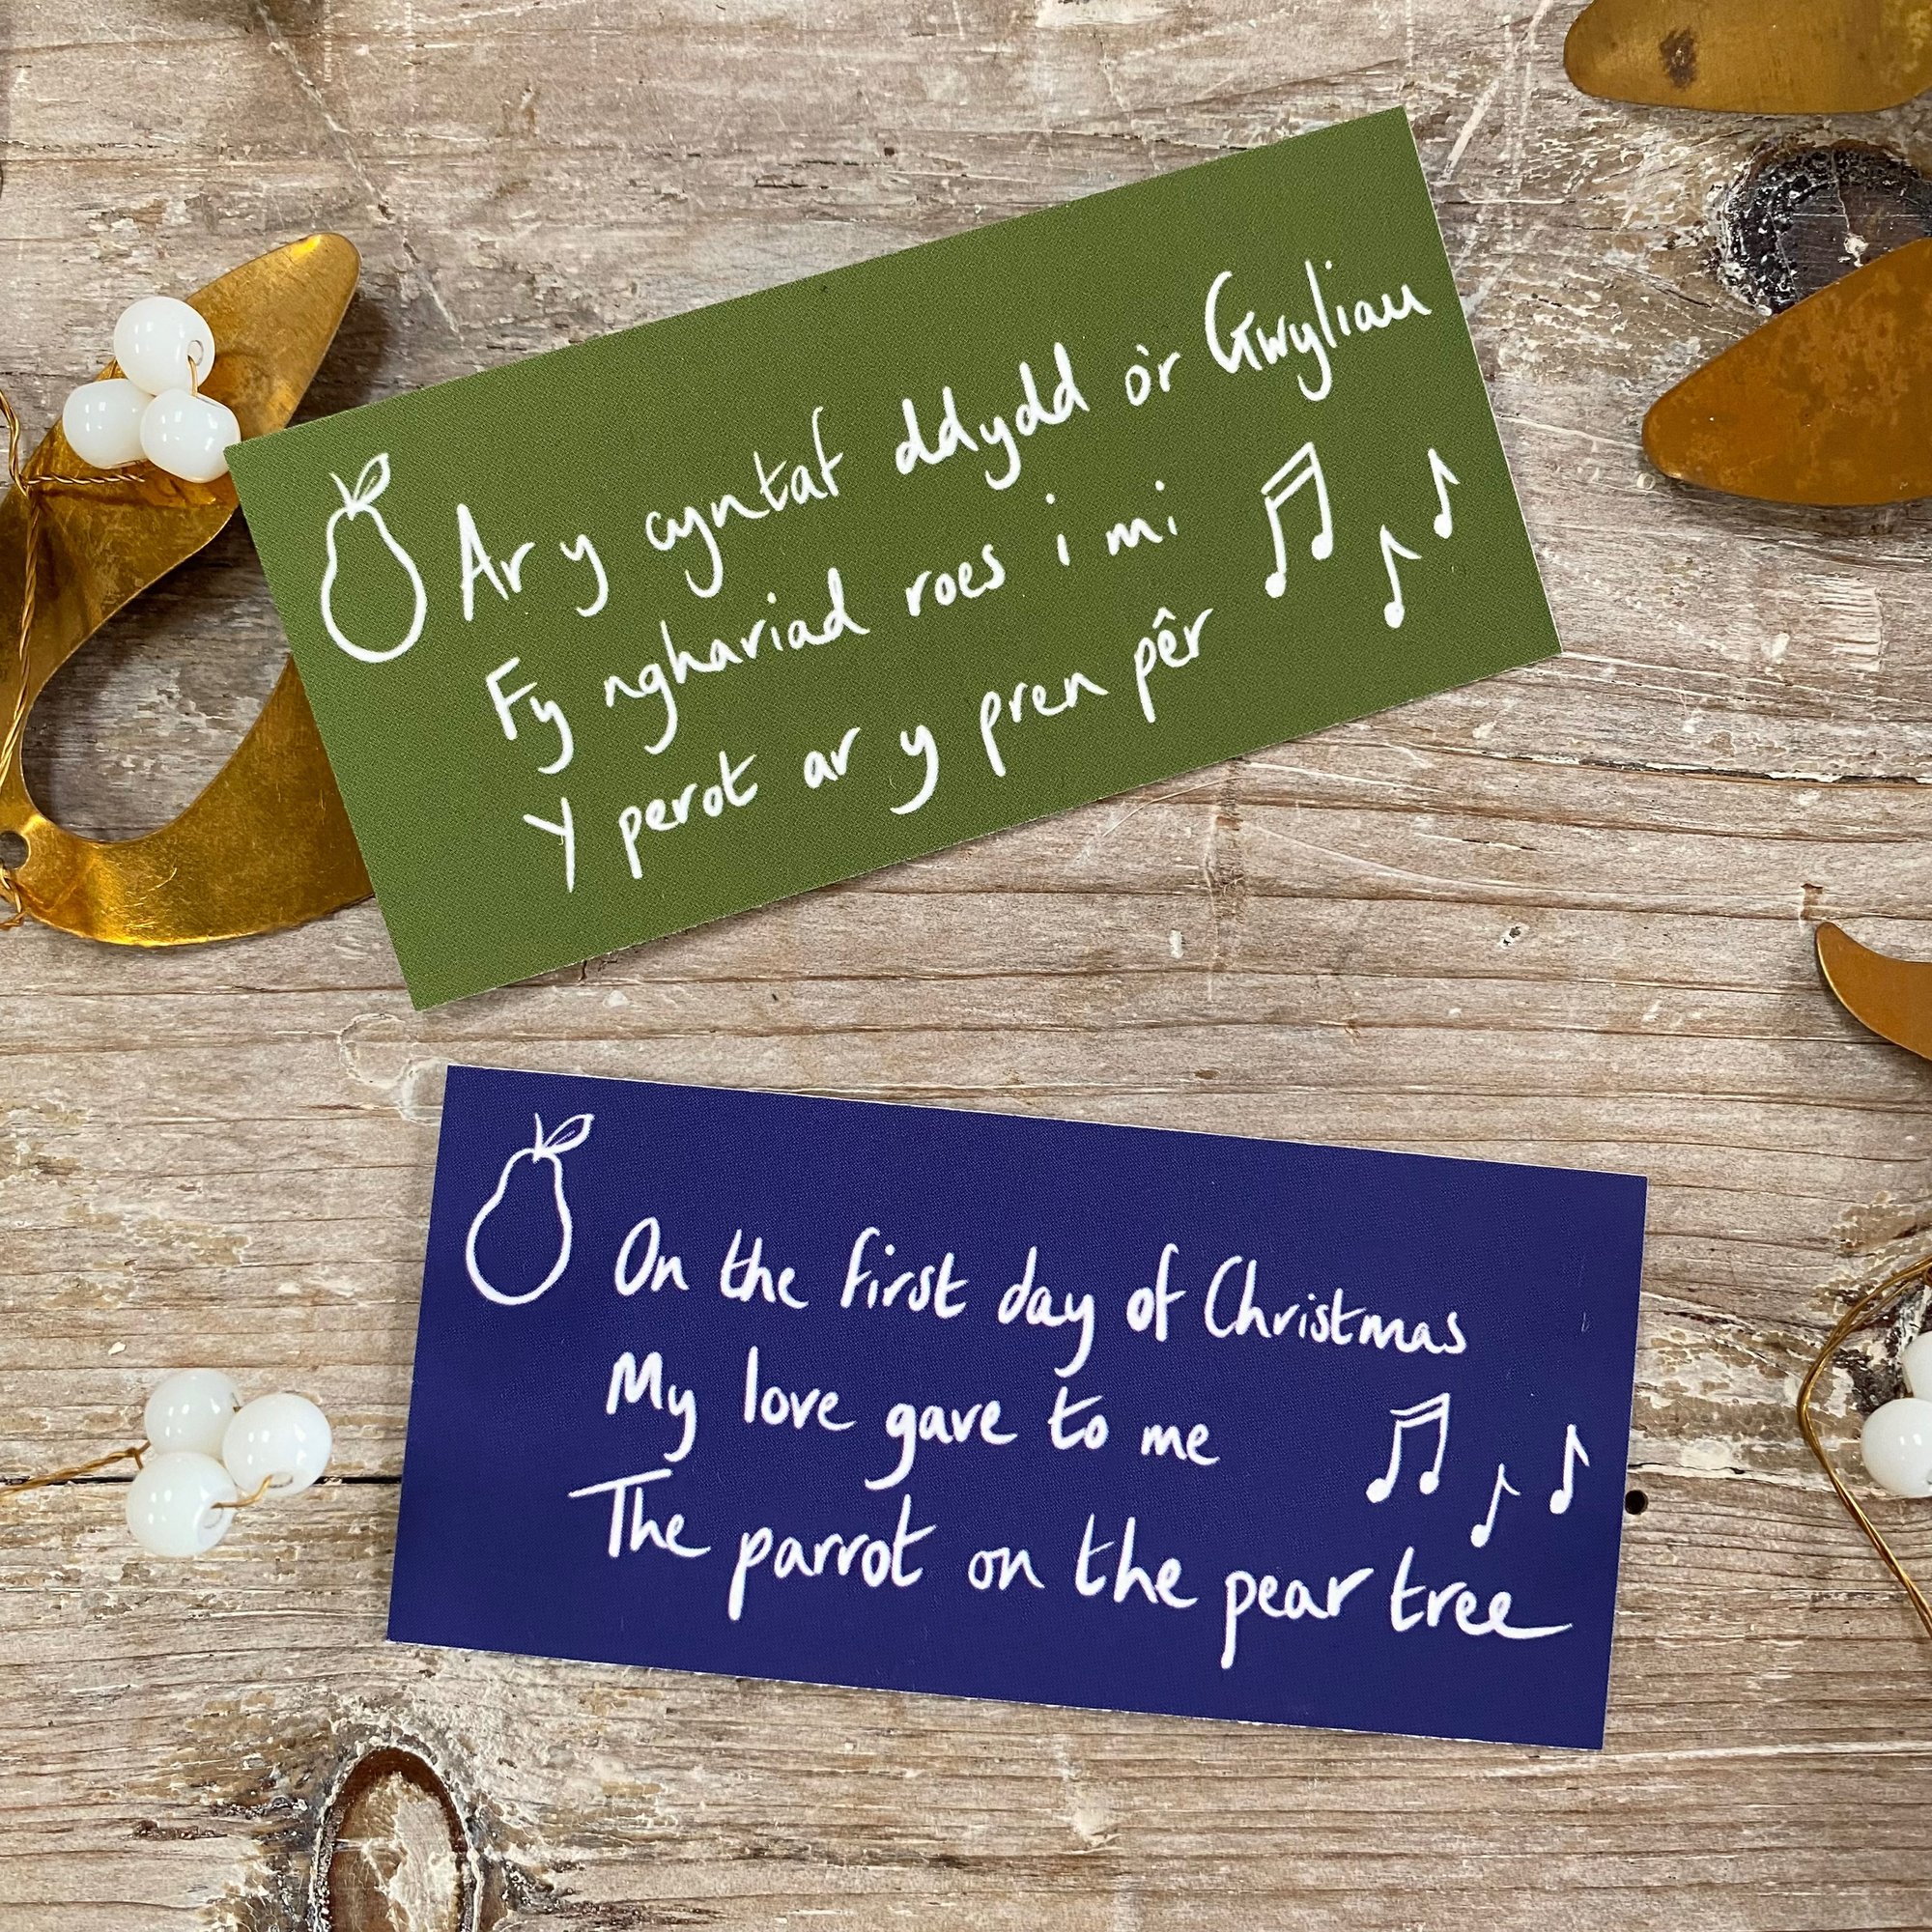 Ar y cyntaf ddydd o'r Gwyliau
Fy nghariad roes i mi
Y perot ar y pren pêr
On the first day of Christmas
My love gave to me
The parrot on the pear tree